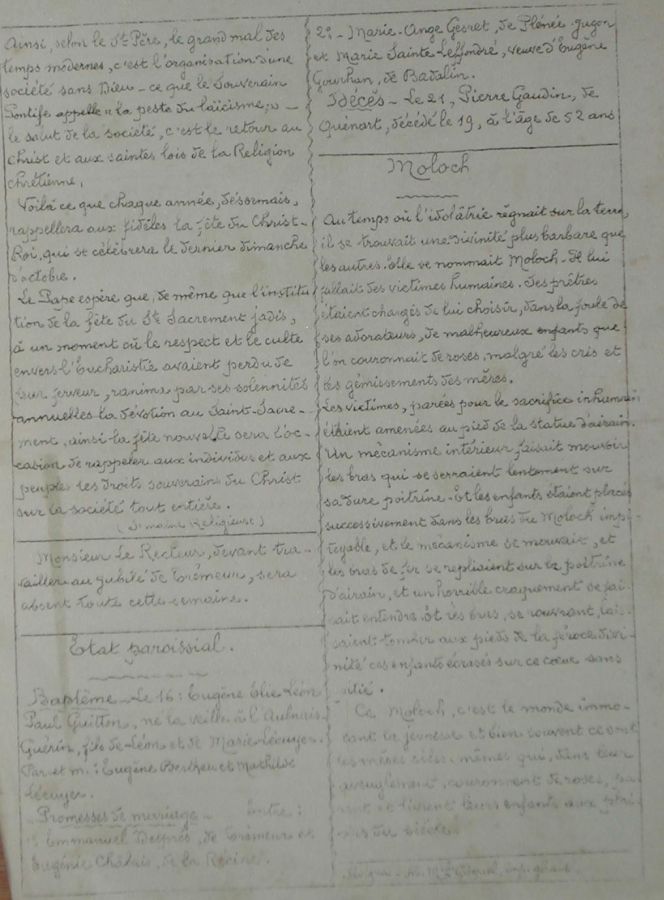 Ainsi, selon le St Père, le grand mal des
temps modernes, c'est l'organisation d'une
société sans Dieu - ce que le Souverain
Pontife appelle "la peste du laïcisme," -
le salut de la société, c'est le retour au
Christ et aux saintes lois de la Religion
chrétienne.
Voilà ce que chaque année, désormais,
rappellera aux fidèles la fête du Christ-
Roi, qui se célébrera le dernier dimanche
d'octobre.
Le Pape espère que, de même que l'institu
tion de la fête du St Sacrement jadis,
à un moment où le respect et le culte
envers l'Eucharistie avaient perdu de
leur ferveur, ranima par ses solennités
annuelles la dévotion au Saint-Sacre-
ment, ainsi la fête nouvelle sera l'oc-
casion de rappeler aux individus et aux
peuples les droits souverains du Christ
sur la société tout entière.
(Semaine Religieuse)
Monsieur le Recteur, devant tra-
vailler au jubilé de Trémeur, sera
absent toute cette semaine.
Etat paroissial.
Baptême - Le 16 : Eugène Elie Léon
Paul Guitton, né la veille à l'Aulnais
Guérin, fils de Léon et de Marie Lécuyer.
Par. et m. : Eugène Bertheu et Mathilde
Lécuyer.
Promesses de mariage - Entre :
Emmanuel Després, de Trémeur et
Eugénie Châtais, de la
2° - Marie-Ange Gesret, de Plénée-Jugon
et Marie Sainte Leffondré, veuve d'Eugène
Gourhan, de Badalin.
Décès - Le 21, Pierre Gaudin, de
Quénart, décédé le 19, à l'âge de 52 ans
Moloch
Au temps où l'idolâtrie régnait sur la terre,
il se trouvait une divinité plus barbare que
les autres. Elle se nommait Moloch. Il lui
fallait des victimes humaines. Des prêtres
étaient chargés de lui choisir, dans la foule de
ses adorateurs, de malheureux enfants que
l'on couronnait de roses, malgré les cris et
les gémissements des mères.
Les victimes, parées pour le sacrifice inhumain
étaient amenées au pied de la statue d'airain.
Un mécanisme intérieur faisait mouvoir
les bras qui se serraient lentement sur
sa dure poitrine. Et les enfants étaient placés
successivement dans les bras du Moloch impi-
toyable, et le mécanisme se mouvait, et
les bras de fer se repliaient sur la poitrine
d'airain, et un horrible craquement se fai-
sait entendre. Et les bras, se rouvrant, lais-
saient tomber aux pieds de la féroce divi-
nité ces enfants écrasés sur ce cœur sans
pitié.
Ce Moloch, c'est le monde immo-
lant la jeunesse et bien souvent ce sont
les mères elles-mêmes qui, dans leur
aveuglement, couronnent de roses, pa-
rent et livrent leurs enfants aux
du siècle.